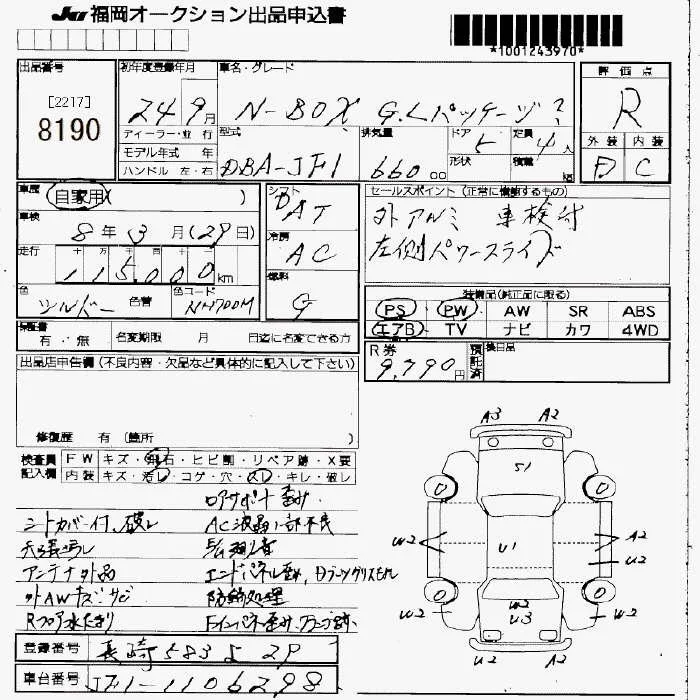 JU 福岡オークション出品申込書
*1001243970*
出品番号
[2217]
8190
初年度登録年月
24 9月
車名・グレード
N-BOX G.Lパッケージ
評価点
R
外装 内装
D C
ディーラー・並行
モデル年式 年
ハンドル 左・右
型式
DBA-JF1
排気量
660 00
ドア
5
形状
定員
4人
積載
kg
車歴
自家用( )
車検
8年3月(29日)
走行
十万 万 千 百 十
115,000km
色
シルバー
色替
色コード
NH700M
シフト
DAT
冷房
AC
燃料
G
セールスポイント(正常に機能するもの)
外アルミ 車検付
左側パワースライド
装備品(純正品に限る)
PS PW AW SR ABS
エアB TV ナビ カワ 4WD
保証書
有・無
名変期限 月 日迄に名変できる方
R券
9,790円
預託済
後日品
出品店申告欄(不良内容・欠品など具体的に記入して下さい)
修復歴 有(箇所 )
検査員記入欄
FW キズ・飛石・ヒビ割・リペア跡・X要
内装 キズ・汚レ・コゲ・穴・スレ・キレ・破レ
ロアサポート歪み
シートカバー付、破レ
AC液晶一部不良
天張汚レ
アンテナ外品
エンドパネル歪み、
外AWキズサビ
防錆処理
Rフロア水たまり
登録番号
長崎 583 よ 29
車台番号
JF1-1106298
A3 A2
S1
U1
W2
A2
U2
W2
W2
W2
U3
U2 A2